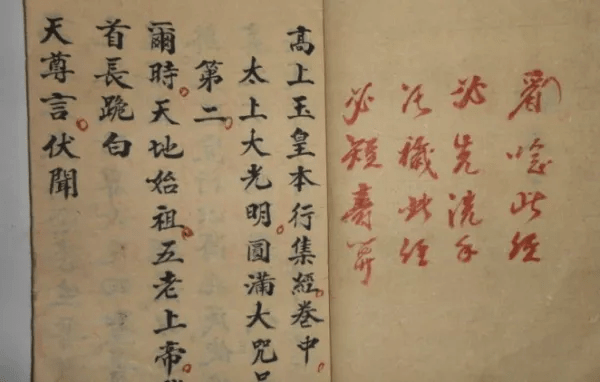 看唸此经
必先洗手
污穢此经
必短壽算
高上玉皇本行集經卷中
太上大光明圓滿大咒品
第二
爾時天地始祖五老上帝
首長跪白
天尊言伏聞